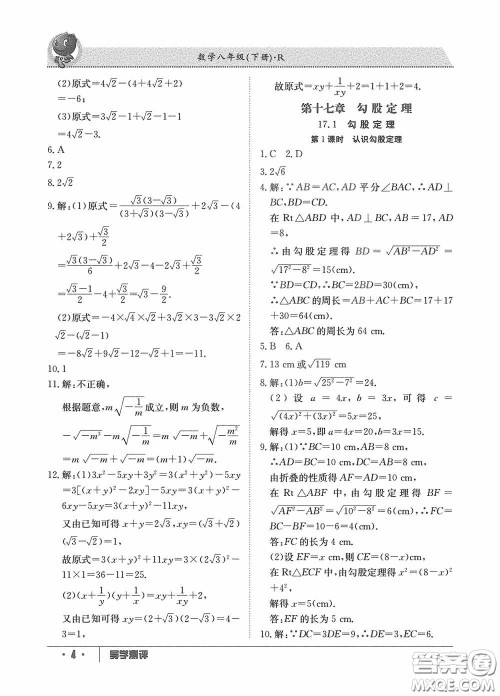 数学八年级(下册)·R
(2)原式=4√2-(4+4√2+2)
=-6;
(3)原式=2√3+√3-1-1
=4√3-3.
6.A
7.2
8.2√2
9.解:(1)原式=√3(3-√3)/((3+√3)(3-√3))+2√3-(4
+2√3)+√3/2
=√3(3-√3)/6+2√3-4-2√3+√3/2
=(√3-1)/2-4+√3/2=√3-9/2.
(2)原式=-4×√4×√2+3×√3×2-3√2×2
√2-(√2-1)
=-8√2+9√2-12-√2+1=-11.
10.1
11.解:不正确,
根据题意,m√(-1/m)成立,则m为负数,
-√(-m³)-m√(-1/m)=m√(-m)+√(-m²/m)
=m√(-m)+√(-m)=(m+1)√(-m).
12.解:(1)3x²-5xy+3y²=3(x²+y²)-5xy
=3[(x+y)²-2xy]-5xy=3(x+y)²
-6xy-5xy=3(x+y)²-11xy,
又由已知可得x+y=2√3,xy=(√3+√2)
(√3-√2)=1,
故原式=3(x+y)²+11xy=3×(2√3)²-11
×1=36-11=25.
(2)(x+1/y)(y+1/x)=xy+1/xy+2,
又由已知可得xy=(2+√3)(2-√3)=4-
3=1,
故原式=xy+1/xy+2=1+1+2=4.
第十七章 勾股定理
17.1 勾股定理
第1课时 认识勾股定理
1.C 2.D
3.2√6
4.解:∵AB=AC,AD平分∠BAC,∴AD⊥
BC,BD=CD.
在Rt△ABD中,AD⊥BC,AB=17,AD
=8,
∴由勾股定理得BD=√(AB²-AD²)=
√(17²-8²)=15(cm).
∵BD=CD,∴BC=2BD=30(cm),
∴△ABC的周长=AB+AC+BC=17+17
+30=64(cm).
答:△ABC的周长为64 cm.
5.B 6.A
7.13 cm或√119 cm
8.解:(1)b=√(25²-7²)=24.
(2)设a=4x,b=3x,可得c=
√((4x)²+(3x)²)=5x=25,
解得x=5,即a=4x=20,b=3x=15.
9.解:(1)∵BC=10 cm,AB=8 cm,
∴AD=BC=10 cm,DC=AB=8 cm,
由折叠的性质得AF=AD=10 cm,
在Rt△ABF中,由勾股定理得BF=
√(AF²-AB²)=√(10²-8²)=6(cm),∴FC=
BC-BF=10-6=4(cm).
答:FC的长为4 cm.
(2)设EF=x cm,则CE=(8-x)cm,
在Rt△ECF中,由勾股定理得x²=(8-x)²
+4²,
解得x=5.
答:EF的长为5 cm.
10.解:∵DC=3DE=9,∴DE=3,EC=6.
·4· 易学测评
答案圈
MXQE.COM